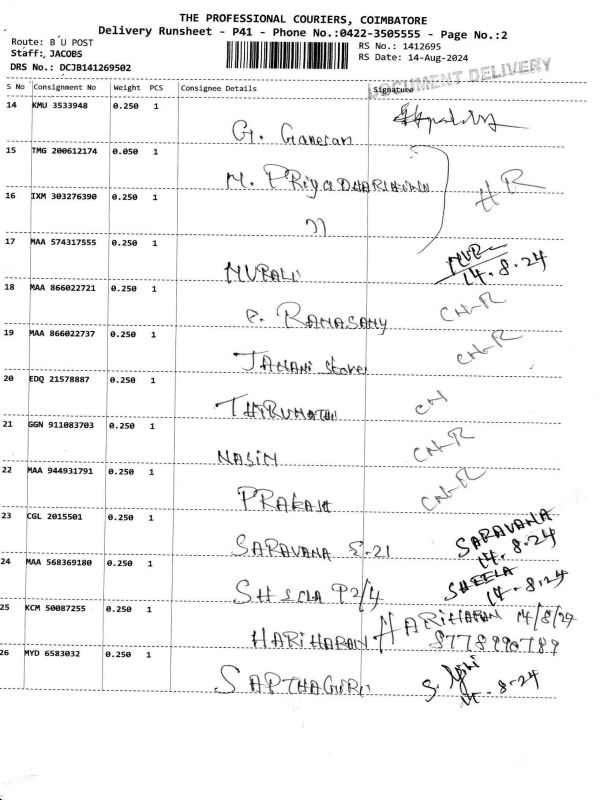 THE PROFESSIONAL COURIERS, COIMBATORE
Delivery Runsheet - P41 - Phone No.:0422-3505555 - Page No.:2
Route: B U POST
RS No.: 1412695
Staff: JACOBS
RS Date: 14-Aug-2024
DRS No.: DCJB141269502
DOCUMENT DELIVERY
S No Consignment No Weight PCS Consignee Details Signature
14 KMU 3533948 0.250 1
G. Ganesan
15 TMG 200612174 0.050 1
M. PRiyaDHARSHINI
HR
16 IXM 303276390 0.250 1
"
17 MAA 574317555 0.250 1
MURALI
14.8.24
18 MAA 866022721 0.250 1
P. RAMASAMY CN-R
19 MAA 866022737 0.250 1
JANANI Stores CN-R
20 EDQ 21578887 0.250 1
THIRUMATHI CN
21 GGN 911083703 0.250 1
NASIM CN-R
22 MAA 944931791 0.250 1
PRAKASH CN-R
23 CGL 2015501 0.250 1
SARAVANA S-21 SARAVANA
14.8.24
24 MAA 568369180 0.250 1
SHEELA P2/4 SHEELA
14.8.24
25 KCM 50087255 0.250 1
HARIHARAN HARIHARAN 14/8/24
8778990789
26 MYD 6583032 0.250 1
SAPTHAGIRI
14.8.24